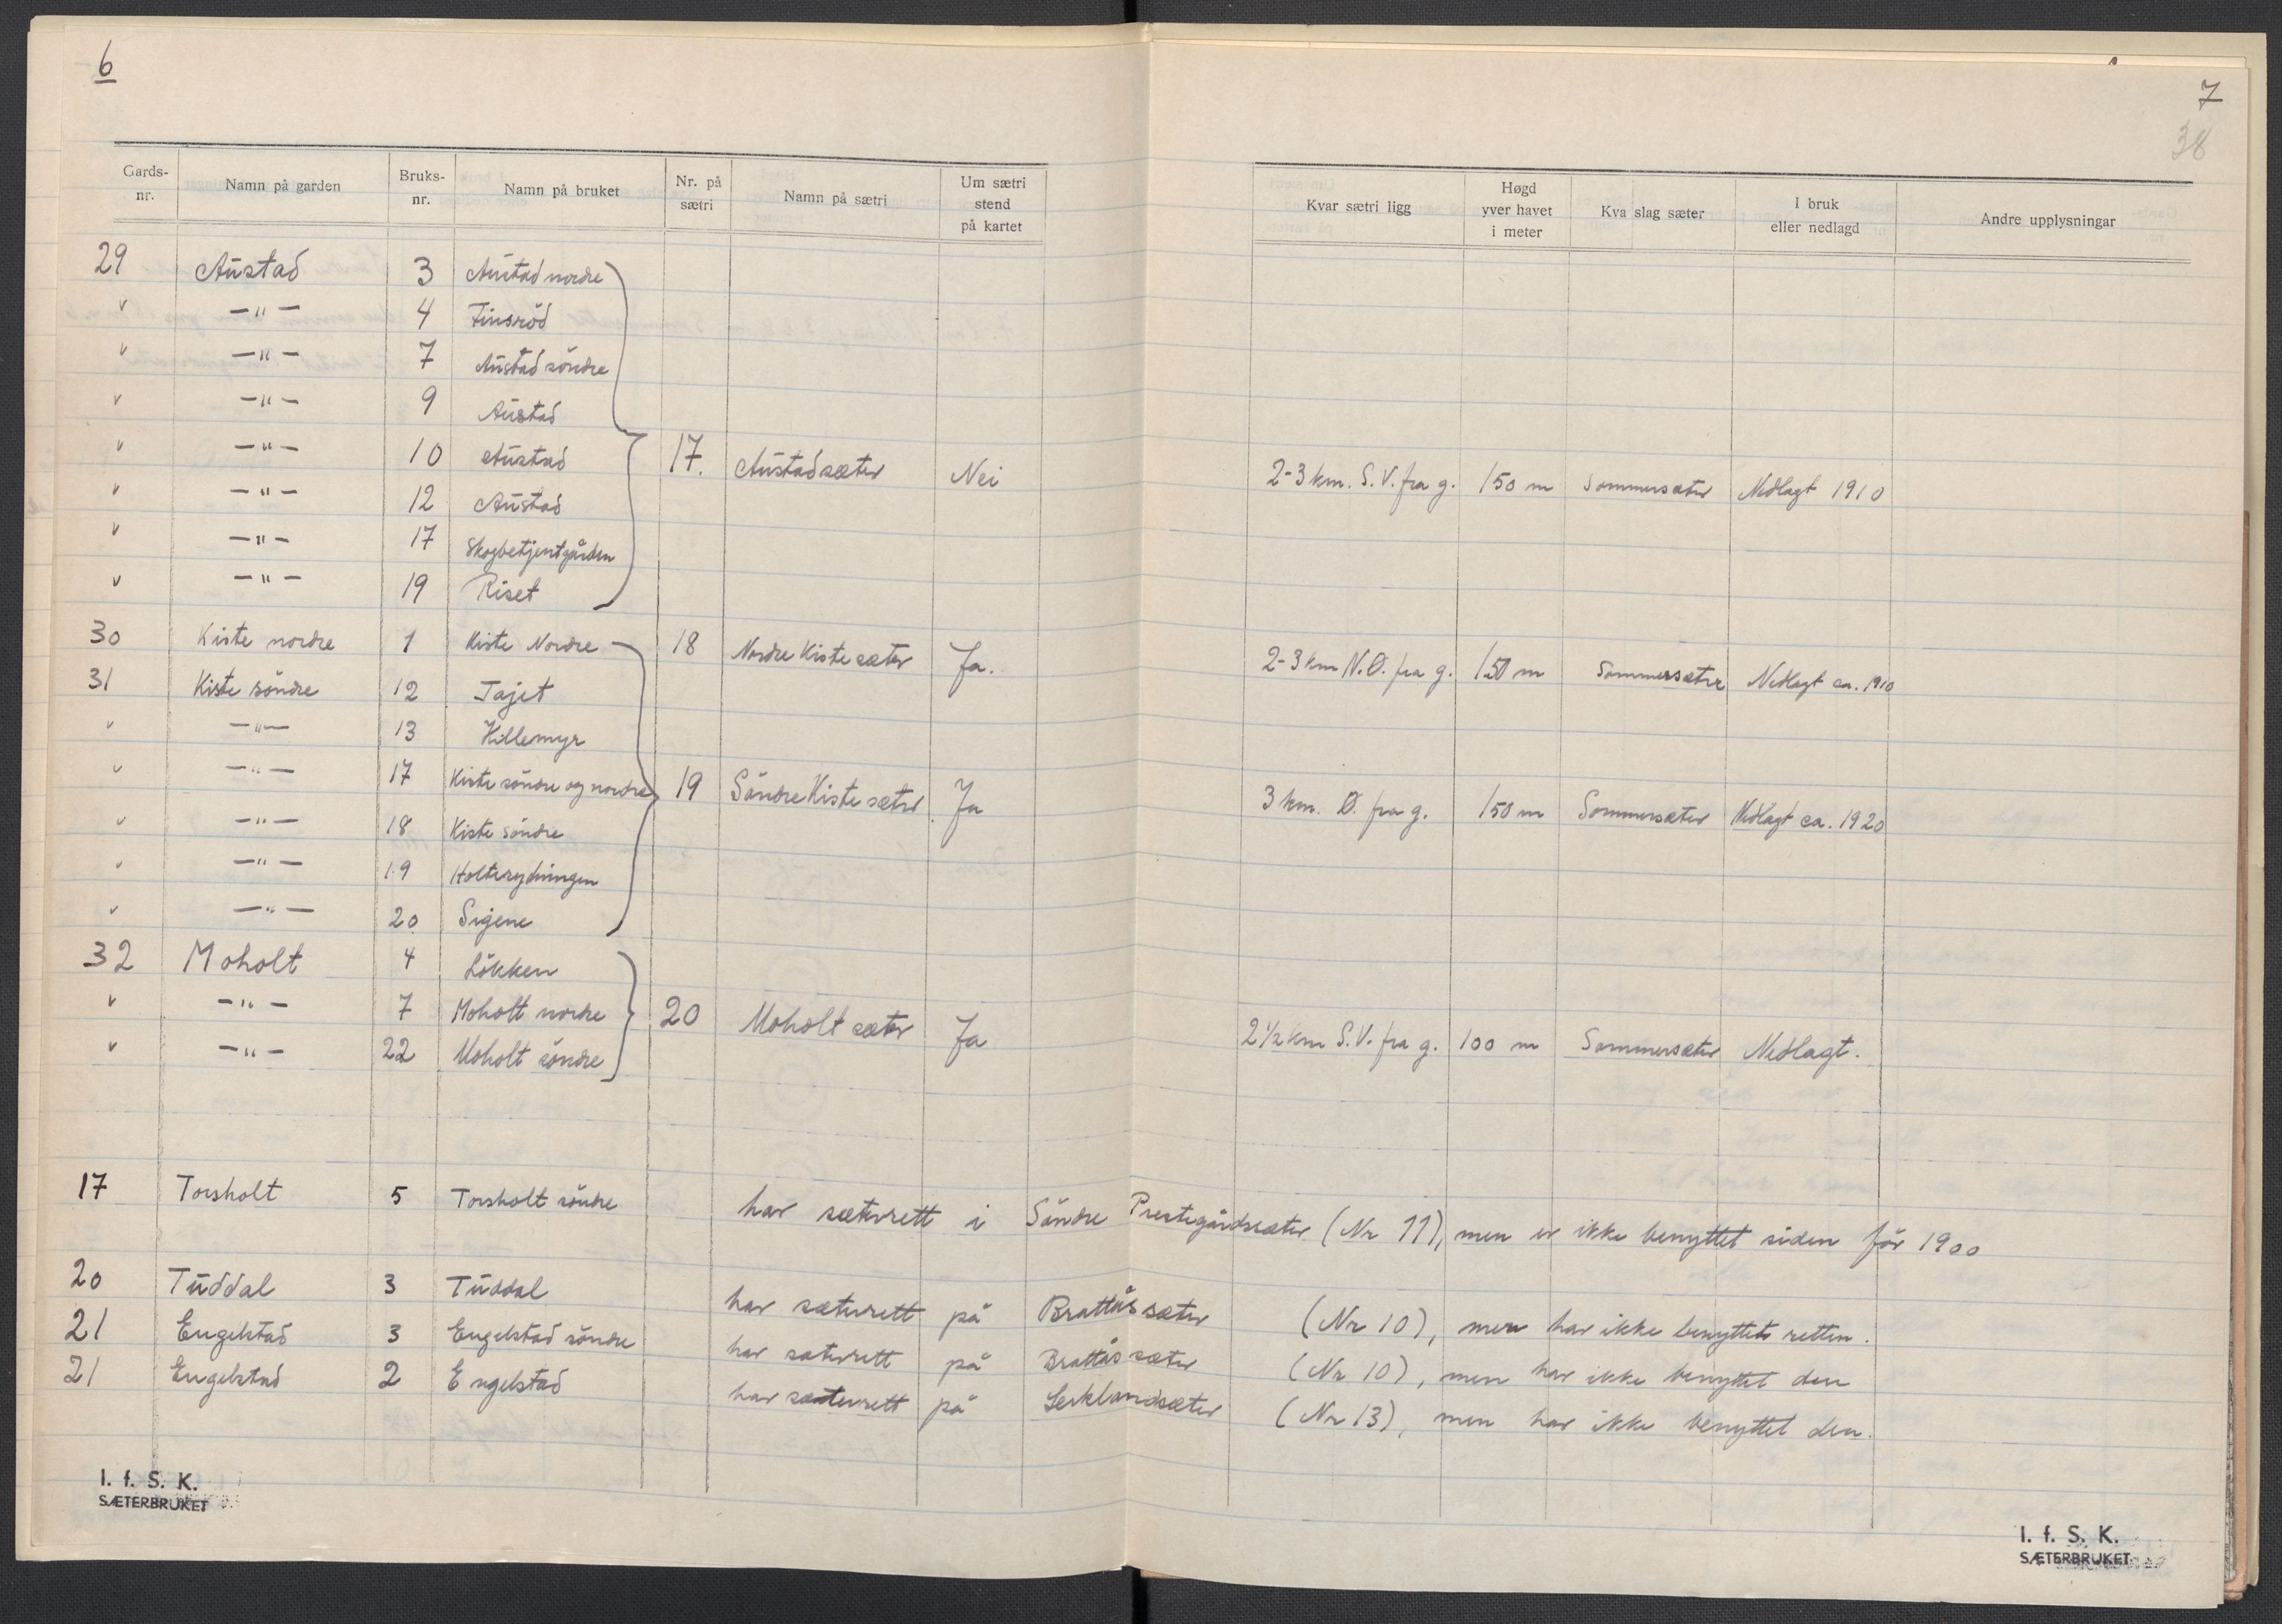 6
7
38
Gards-nr. Namn på garden Bruks-nr. Namn på bruket Nr. på sætri Namn på sætri Um sætri stend på kartet Kvar sætri ligg Høgd yver havet i meter Kva slag sæter I bruk eller nedlagd Andre upplysningar
29 Austad 3 Austad nordre
" —"— 4 Finsröd
" —"— 7 Austad söndre
" —"— 9 Austad
" —"— 10 Austad 17. Austadsæter Nei 2-3 km. S.V. fra g. 150 m Sommersæter Nedlagt 1910
" —"— 12 Austad
" —"— 17 Skogbetjentgården
" —"— 19 Riset
30 Kiste nordre 1 Kiste Nordre 18 Nordre Kiste sæter Ja. 2-3 km N.Ö. fra g. 150 m Sommersæter Nedlagt ca. 1910
31 Kiste söndre 12 Tajet
" —"— 13 Hillemyr
" —"— 17 Kiste söndre og nordre 19 Söndre Kiste sæter Ja 3 km. Ö. fra g. 150 m Sommersæter Nedlagt ca. 1920
" —"— 18 Kiste söndre
" —"— 19 Holterydningen
" —"— 20 Sigene
32 Moholt 4 Lökken
" —"— 7 Moholt nordre 20 Moholt sæter Ja 2 1/2 km S.V. fra g. 100 m Sommersæter Nedlagt.
" —"— 22 Moholt söndre
17 Torsholt 5 Torsholt söndre har sæterrett i Söndre Prestegårdsæter (Nr 11), men er ikke benyttet siden för 1900
20 Tuddal 3 Tuddal har sæterrett på Brattås sæter (Nr 10), men har ikke benyttet retten.
21 Engelstad 3 Engelstad söndre har sæterrett på Brattås sæter (Nr 10), men har ikke benyttet den
21 Engelstad 2 Engelstad har sæterrett på Lerklandsæter (Nr 13), men har ikke benyttet den.
I. f. S. K.
SÆTERBRUKET
I. f. S. K.
SÆTERBRUKET